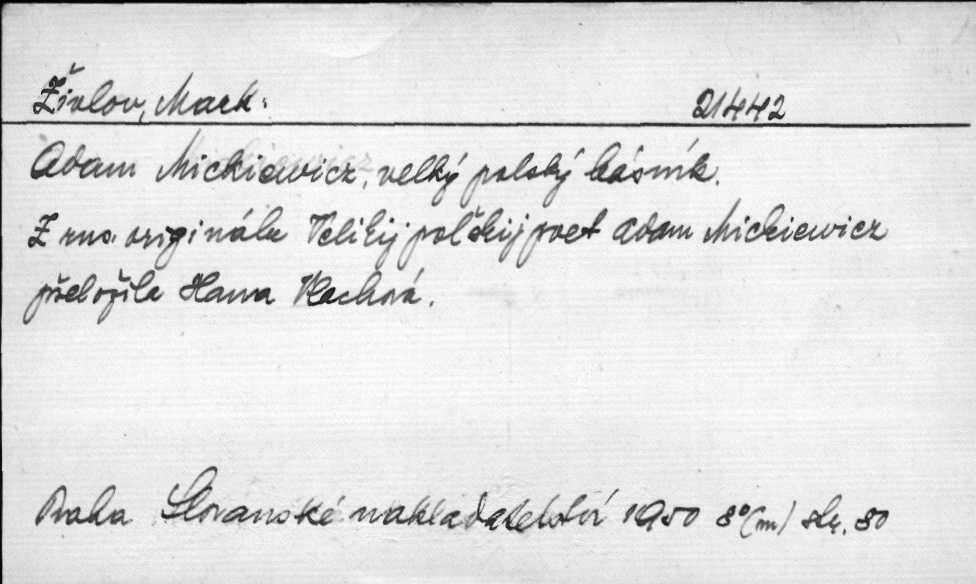 Živlov, Mark: 21442
Adam Mickiewicz, velký polský básník.
Z rus. originálu Velikij polskij poet Adam Mickiewicz
přeložila Hana Vlachová.
Praha Slovanské nakladatelství 1950 8°(m) str. 80